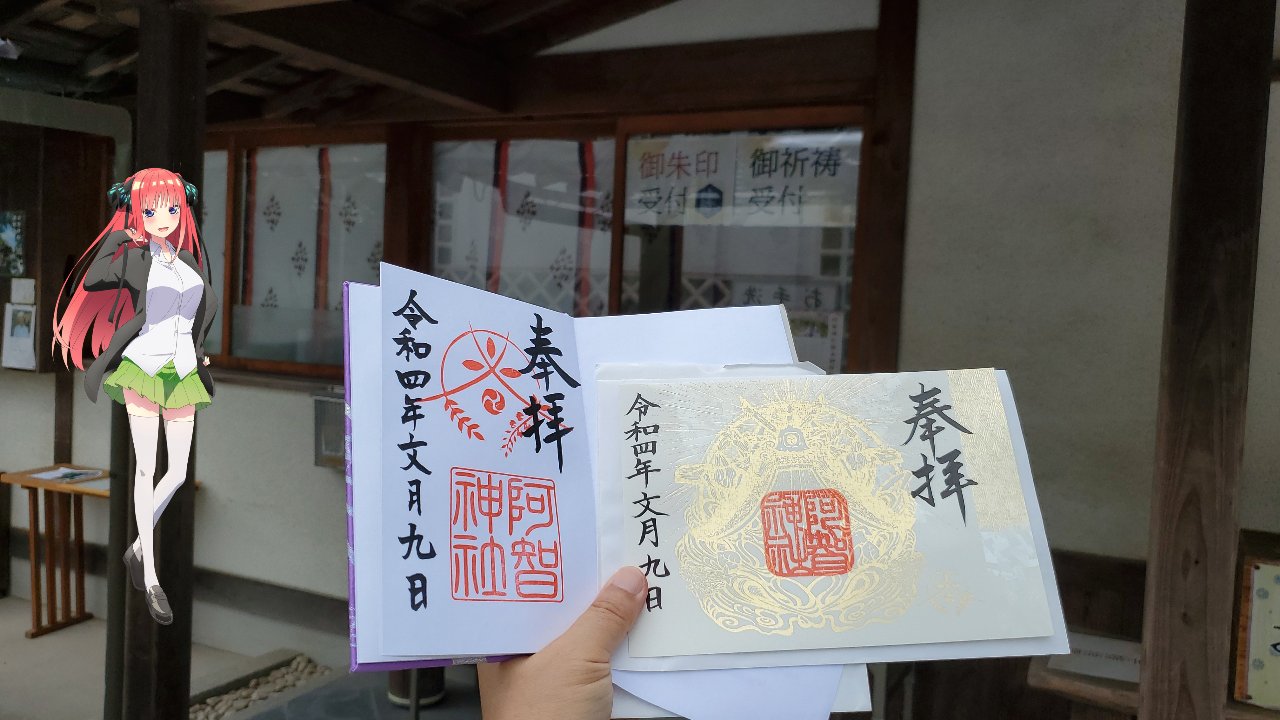 御朱印
受付
御祈祷
受付
奉拝
阿智
神社
令和四年文月九日
奉拝
阿智
神社
令和四年文月九日